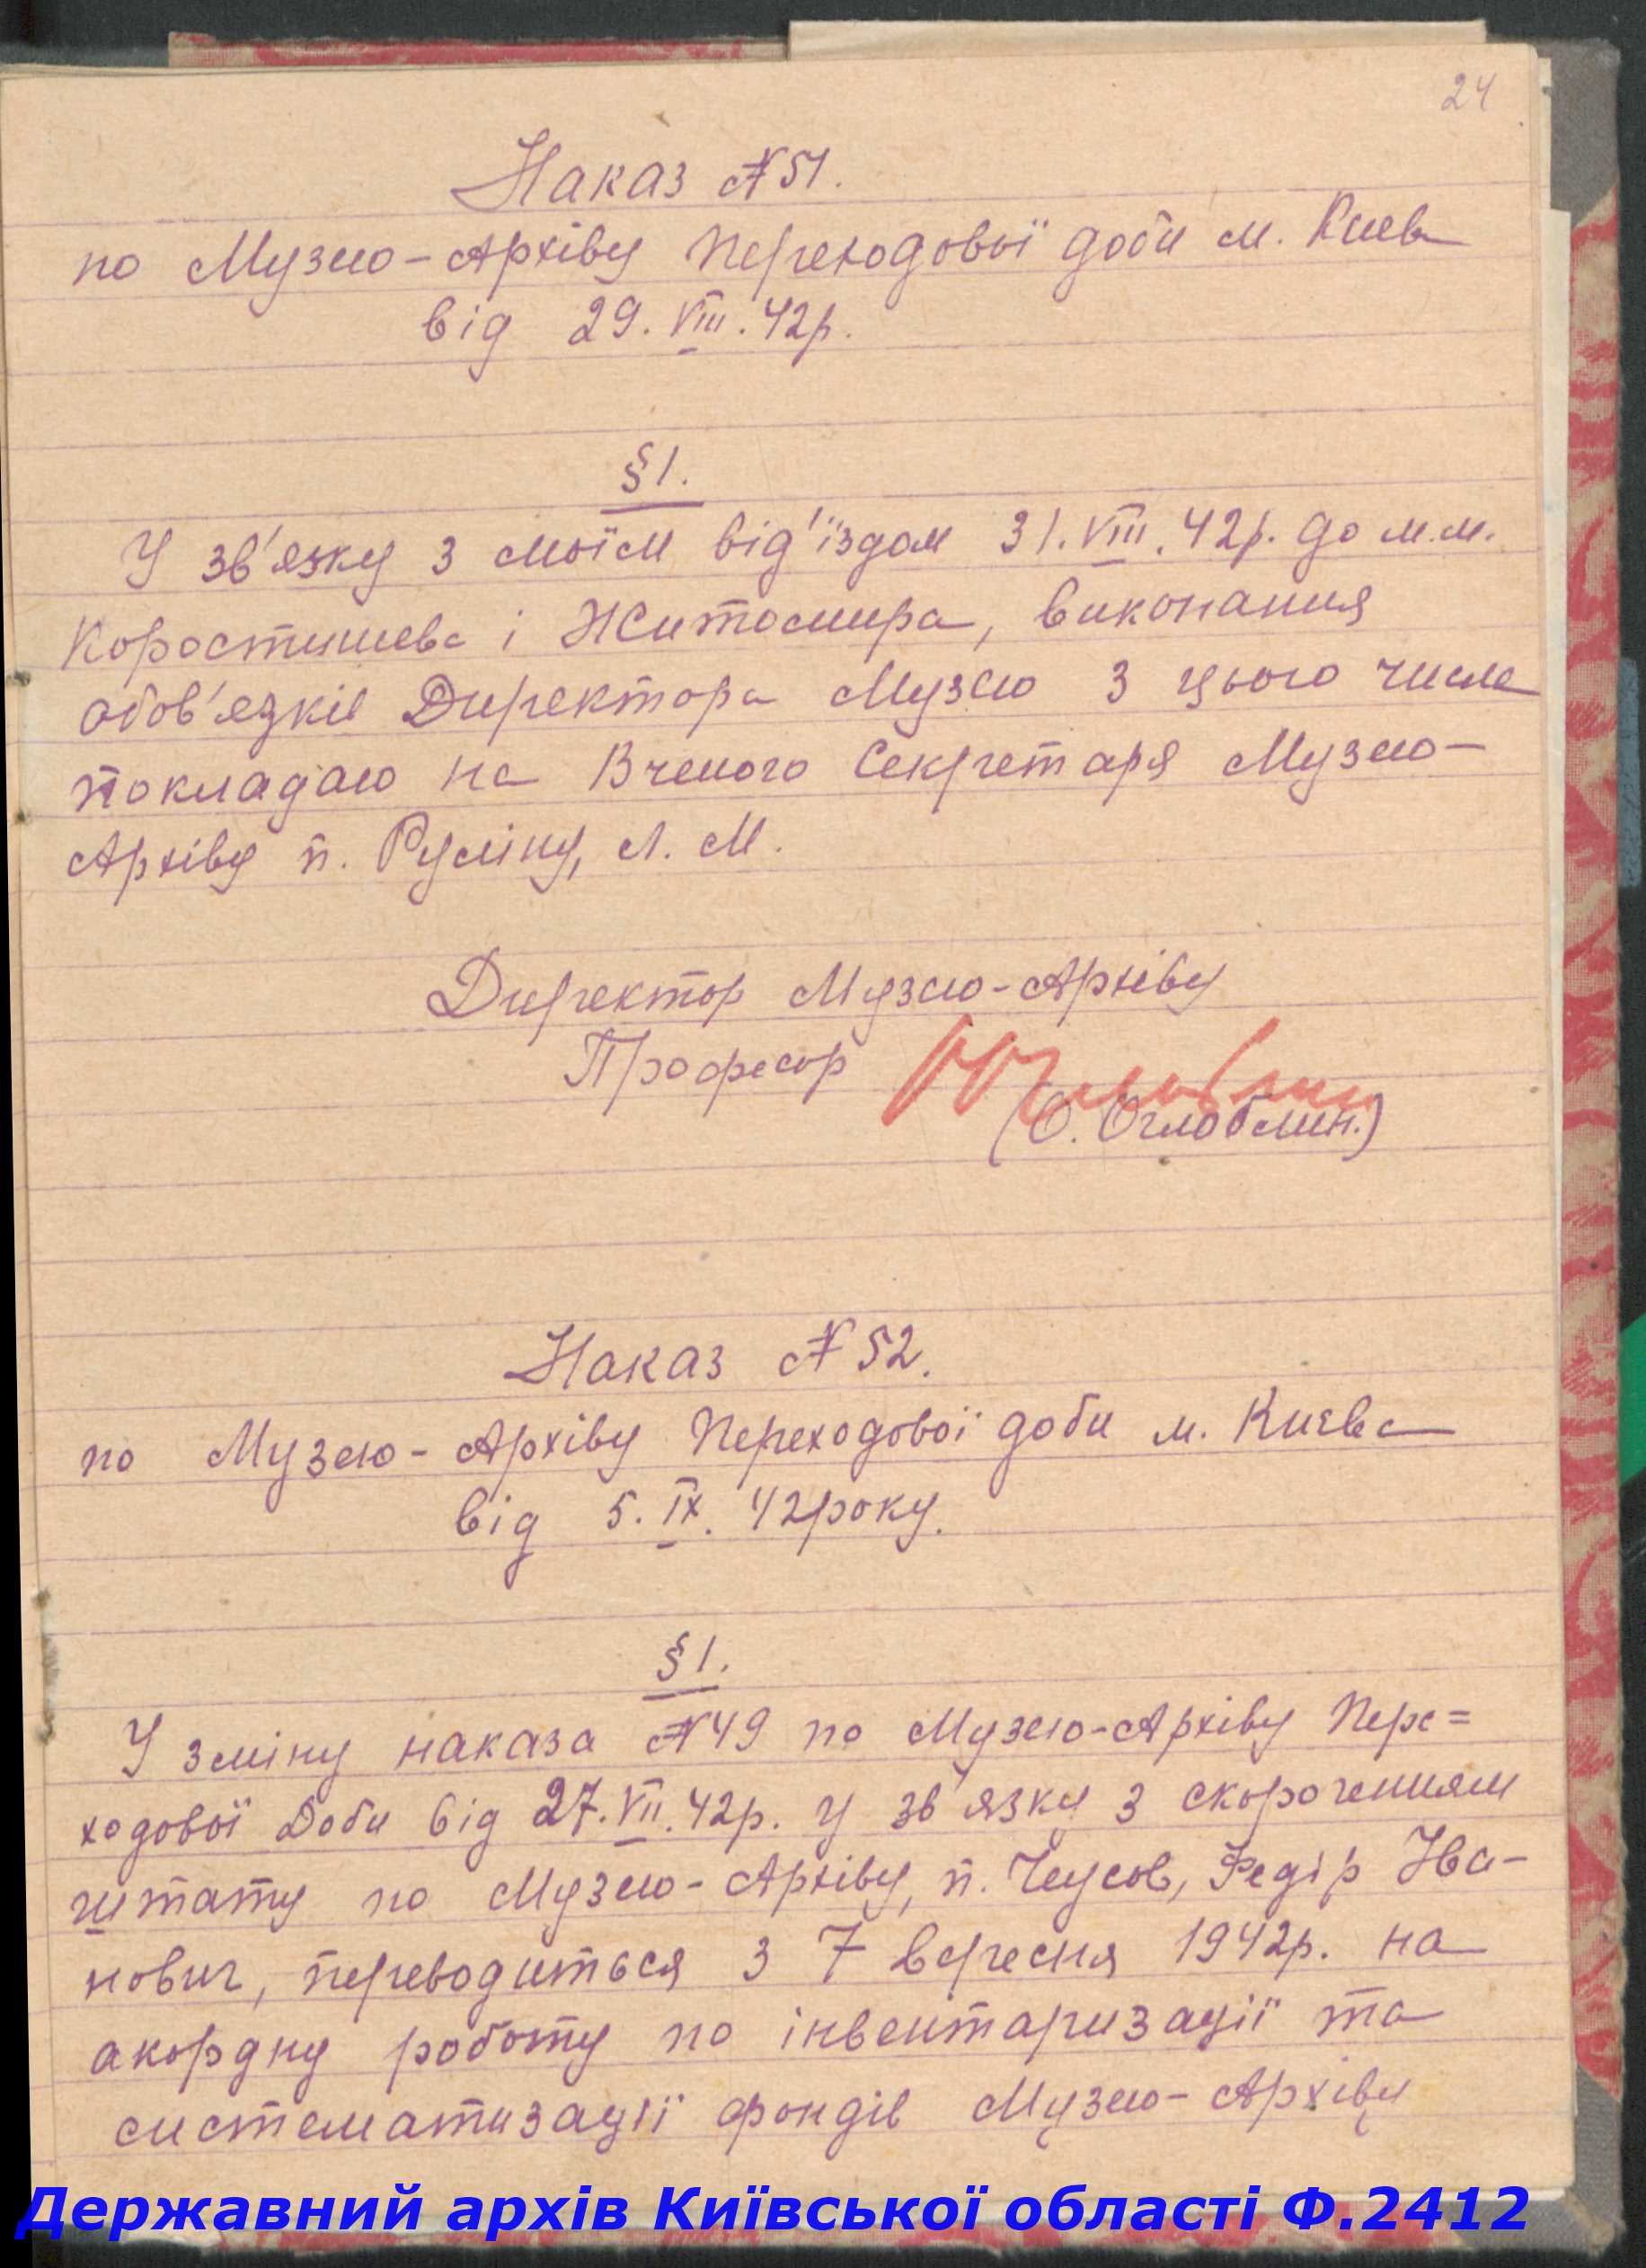 24
Наказ №51.
по Музею-Архіву Переходової доби м. Києва
від 29.VIII.42р.
§1.
У зв'язку з моїм від'їздом 31.VIII.42р. до м.м.
Коростишева і Житомира, виконання
обов'язків Директора Музею з цього числа
покладаю на Вченого Секретаря Музею-
Архіву п. Руліну, Л. М.
Директор Музею-Архіву
Професор
(О. Оглоблин.)
Наказ №52.
по Музею-Архіву Переходової доби м. Києва
від 5.IX.42року.
§1.
У зміну наказа №49 по Музею-Архіву Пере=
ходової Доби від 27.VII.42р. у зв'язку з скороченням
штату по Музею-Архіву, п. Чусов, Федір Іва-
нович, переводиться з 7 вересня 1942р. на
акордну роботу по інвентаризації та
систематизації фондів Музею-Архіву
Державний архів Київської області Ф.2412